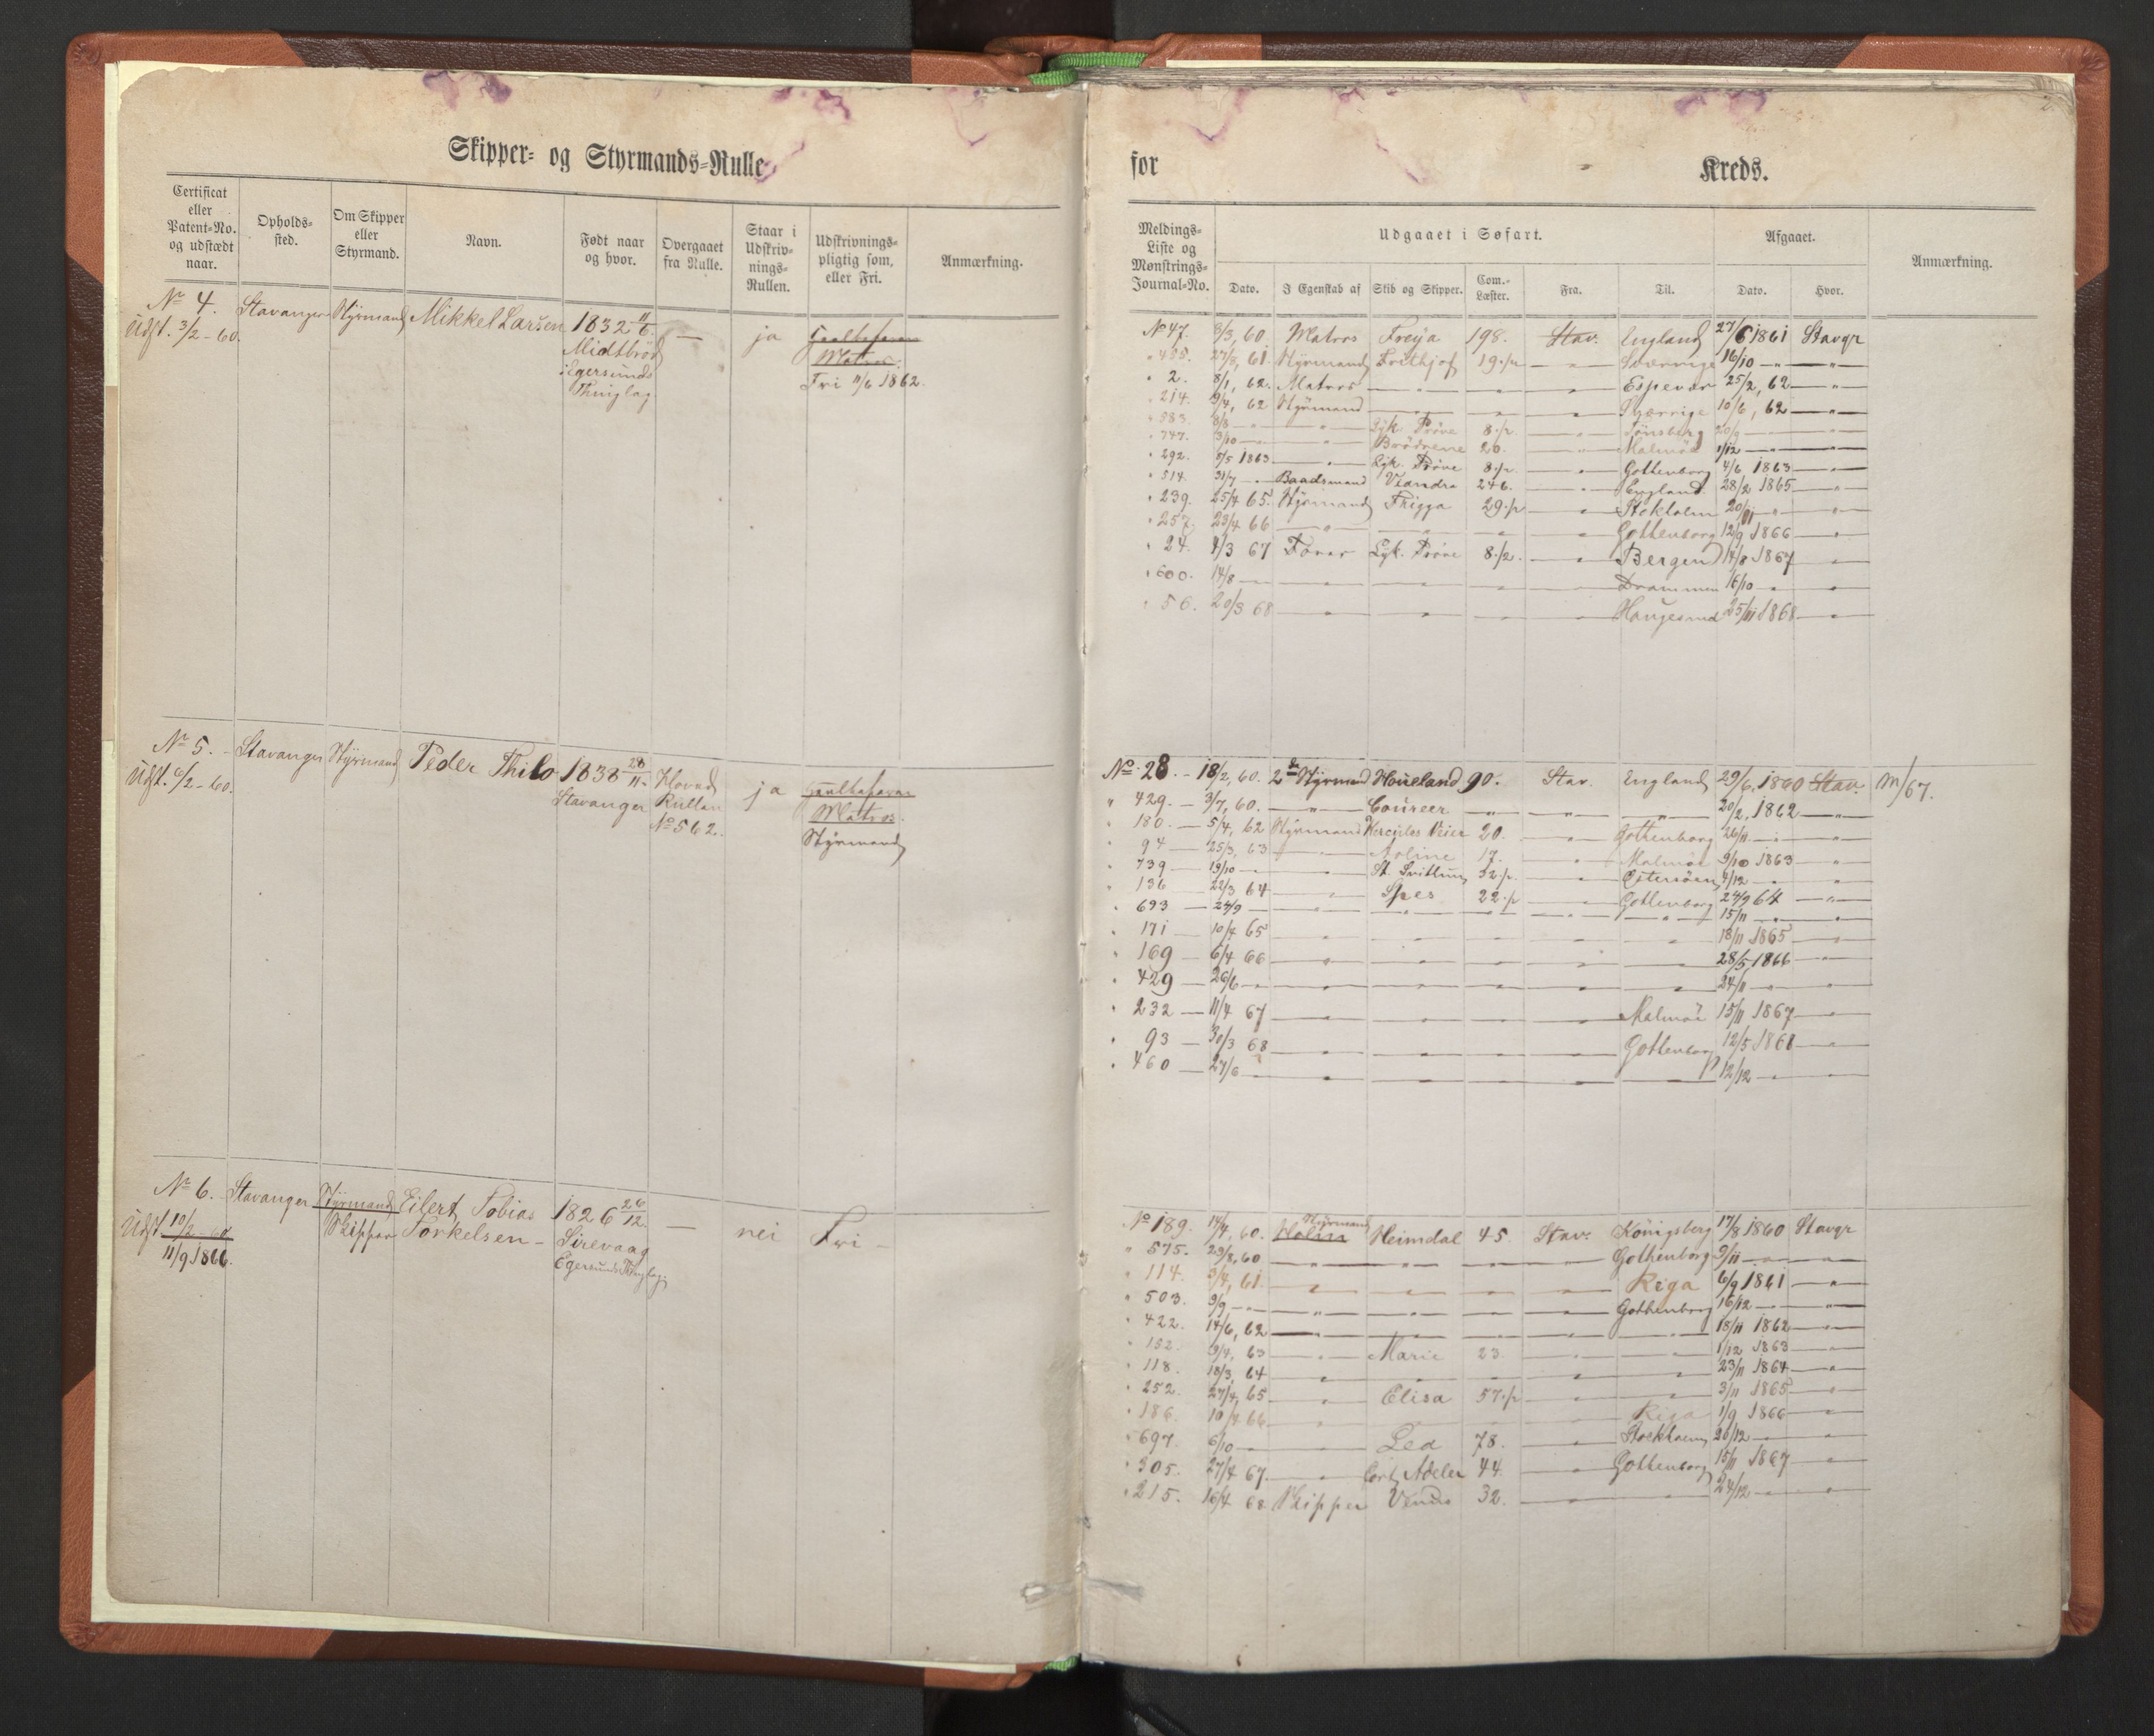 Skipper- og Styrmands-Rulle
Certificat eller Patent-No. og udstædt naar.
Opholds-sted.
Om Skipper eller Styrmand.
Navn.
Født naar og hvor.
Overgaaet fra Rulle.
Staar i Udskriv-nings-Rullen.
Udskrivnings-pligtig som, eller Fri.
Anmærkning.
No 4. Stavanger Styrmand Mikkel Larsen 1832 11/6 — ja
Udst. 3/2 - 60. Midtbröd Matros.
Egersunds Fri 11/6 1862.
Thinglag
No 5. - Stavanger Styrmand Peder Thilo 1838 28/11 Hoved ja
Udst. 6/2 - 60. Stavanger Rullen Matros.
No 562. Styrmand
No 6. - Stavanger Styrmand Eilert Tobias 1826 26/12. — nei Fri -
Udst 10/2 - 60 Skipper Torkelsen - Sirevaag
11/9 1866. Egersunds Thinglag.
for Kreds.
2
Meldings-Liste og Mønstrings-Journal-No.
Udgaaet i Søfart.
Afgaaet.
Anmærkning.
Dato. I Egenskab af Skib og Skipper. Com.-Læster. Fra. Til. Dato. Hvor.
No 47. 8/3, 60. Matros Freya 198. Stav. England 27/6 1861 Stavgr
" 455. 27/8, 61. Styrmand Frithjof 19 1/2 — " — Sverrige 16/10 — " — — " —
" 2. 8/1, 62. Matros — " — — " — — " — Espevær 25/2, 62 — " —
" 214. 9/4, 62 Styrmand — " — — " — — " — Sverrige 10/6, 62 — " —
" 583. 8/8 — " — — " — Lyk. Pröve 8 1/2. — " — Tönsberg 20/9 — " — — " —
" 747. 3/10 — " — — " — Brödrene 20. — " — Malmöe 1/12 — " — — " —
" 292. 5/5 1863 — " — Lyk. Pröve 8 1/2 — " — Gothenborg 4/6 1863 — " —
" 514. 31/7 — " Baadsmand 246. — " — England 28/2 1865 — " —
" 239. 25/4 65. Styrmand Frigga 29 1/2 — " — Stokholm 20/11 — " — — " —
" 257. 23/4 66 — " — — " — — " — — " — Gothenborg 12/9 1866 — " —
" 24. 4/3 67 Lyk. Pröve 8 1/2. — " — Bergen 14/8 1867 — " —
" 600. 14/8 — " — — " — — " — — " — Drammen 16/10 — " — — " —
" 56. 20/3 68 — " — — " — — " — — " — Haugesund 25/11 1868 — " —
No 28. - 18/2, 60. 2den Styrmand Houeland 90. Stav. England 29/6, 1860 Stav. M/67.
" 429. — 3/7, 60. — " — Coureer — " — — " — — " — 20/2, 1862 — " —
" 180. — 5/4, 62 Styrmand 20. — " — Gothenborg 26/11 — " — — " —
" 94 — 25/3, 63 — " — 17. — " — Malmöe 9/10 1863 — " —
" 739 — 13/10 — " — — " — St. Svithun 32 1/2. — " — Östersöen 4/12 — " — — " —
" 136 — 22/3 64 — " — Spes 22 1/2 — " — Gothenborg 24/9 64 — " —
" 693 — 24/9 — " — — " — — " — — " — — " — — " — 15/11 — " — — " —
" 171 — 10/4 65 — " — — " — — " — — " — — " — 18/11 1865 — " —
" 169 — 6/4 66 — " — — " — — " — — " — — " — 28/5 1866 — " —
" 429 — 26/6 — " — — " — — " — — " — — " — — " — 24/11 — " — — " —
" 232 — 11/4 67 — " — — " — — " — — " — Malmöe 15/11 1867 — " —
" 93 — 30/3 68 — " — — " — — " — — " — Gothenborg 12/5 1868 — " —
" 460 — 27/6 — " — — " — — " — — " — — " — — " — 12/12 — " — — " —
No 189. 14/4, 60. Styrmand Heimdal 45. Stav. Königsberg 17/8 1860 Stavgr
" 575. 29/8, 60 — " — — " — — " — — " — Gothenborg 9/11 — " — — " —
" 114. 3/4, 61. — " — — " — — " — — " — Riga 6/9 1861 — " —
" 503. 9/9, — " — — " — — " — — " — — " — Gothenborg 16/12 — " — — " —
" 422. 14/6, 62 — " — — " — — " — — " — — " — 18/11 1862 — " —
" 152. 9/4, 63 — " — Marie 23 — " — — " — 1/12 1863 — " —
" 118. 18/3, 64 — " — — " — — " — — " — — " — 23/11 1864 — " —
" 252. 27/4, 65 — " — Elisa 57 1/2 — " — — " — 3/11 1865 — " —
" 186. 10/4 66 — " — — " — — " — — " — Riga 1/9 1866 — " —
" 697. 6/10 — " — — " — Lea 78. — " — Stockholm 26/12 — " — — " —
" 305. 27/4 67 — " — Cort Adeler 44. — " — Gothenborg 15/11 1867 — " —
" 215. 16/4 68 Skipper Venus 32. — " — — " — 24/12 — " — — " —